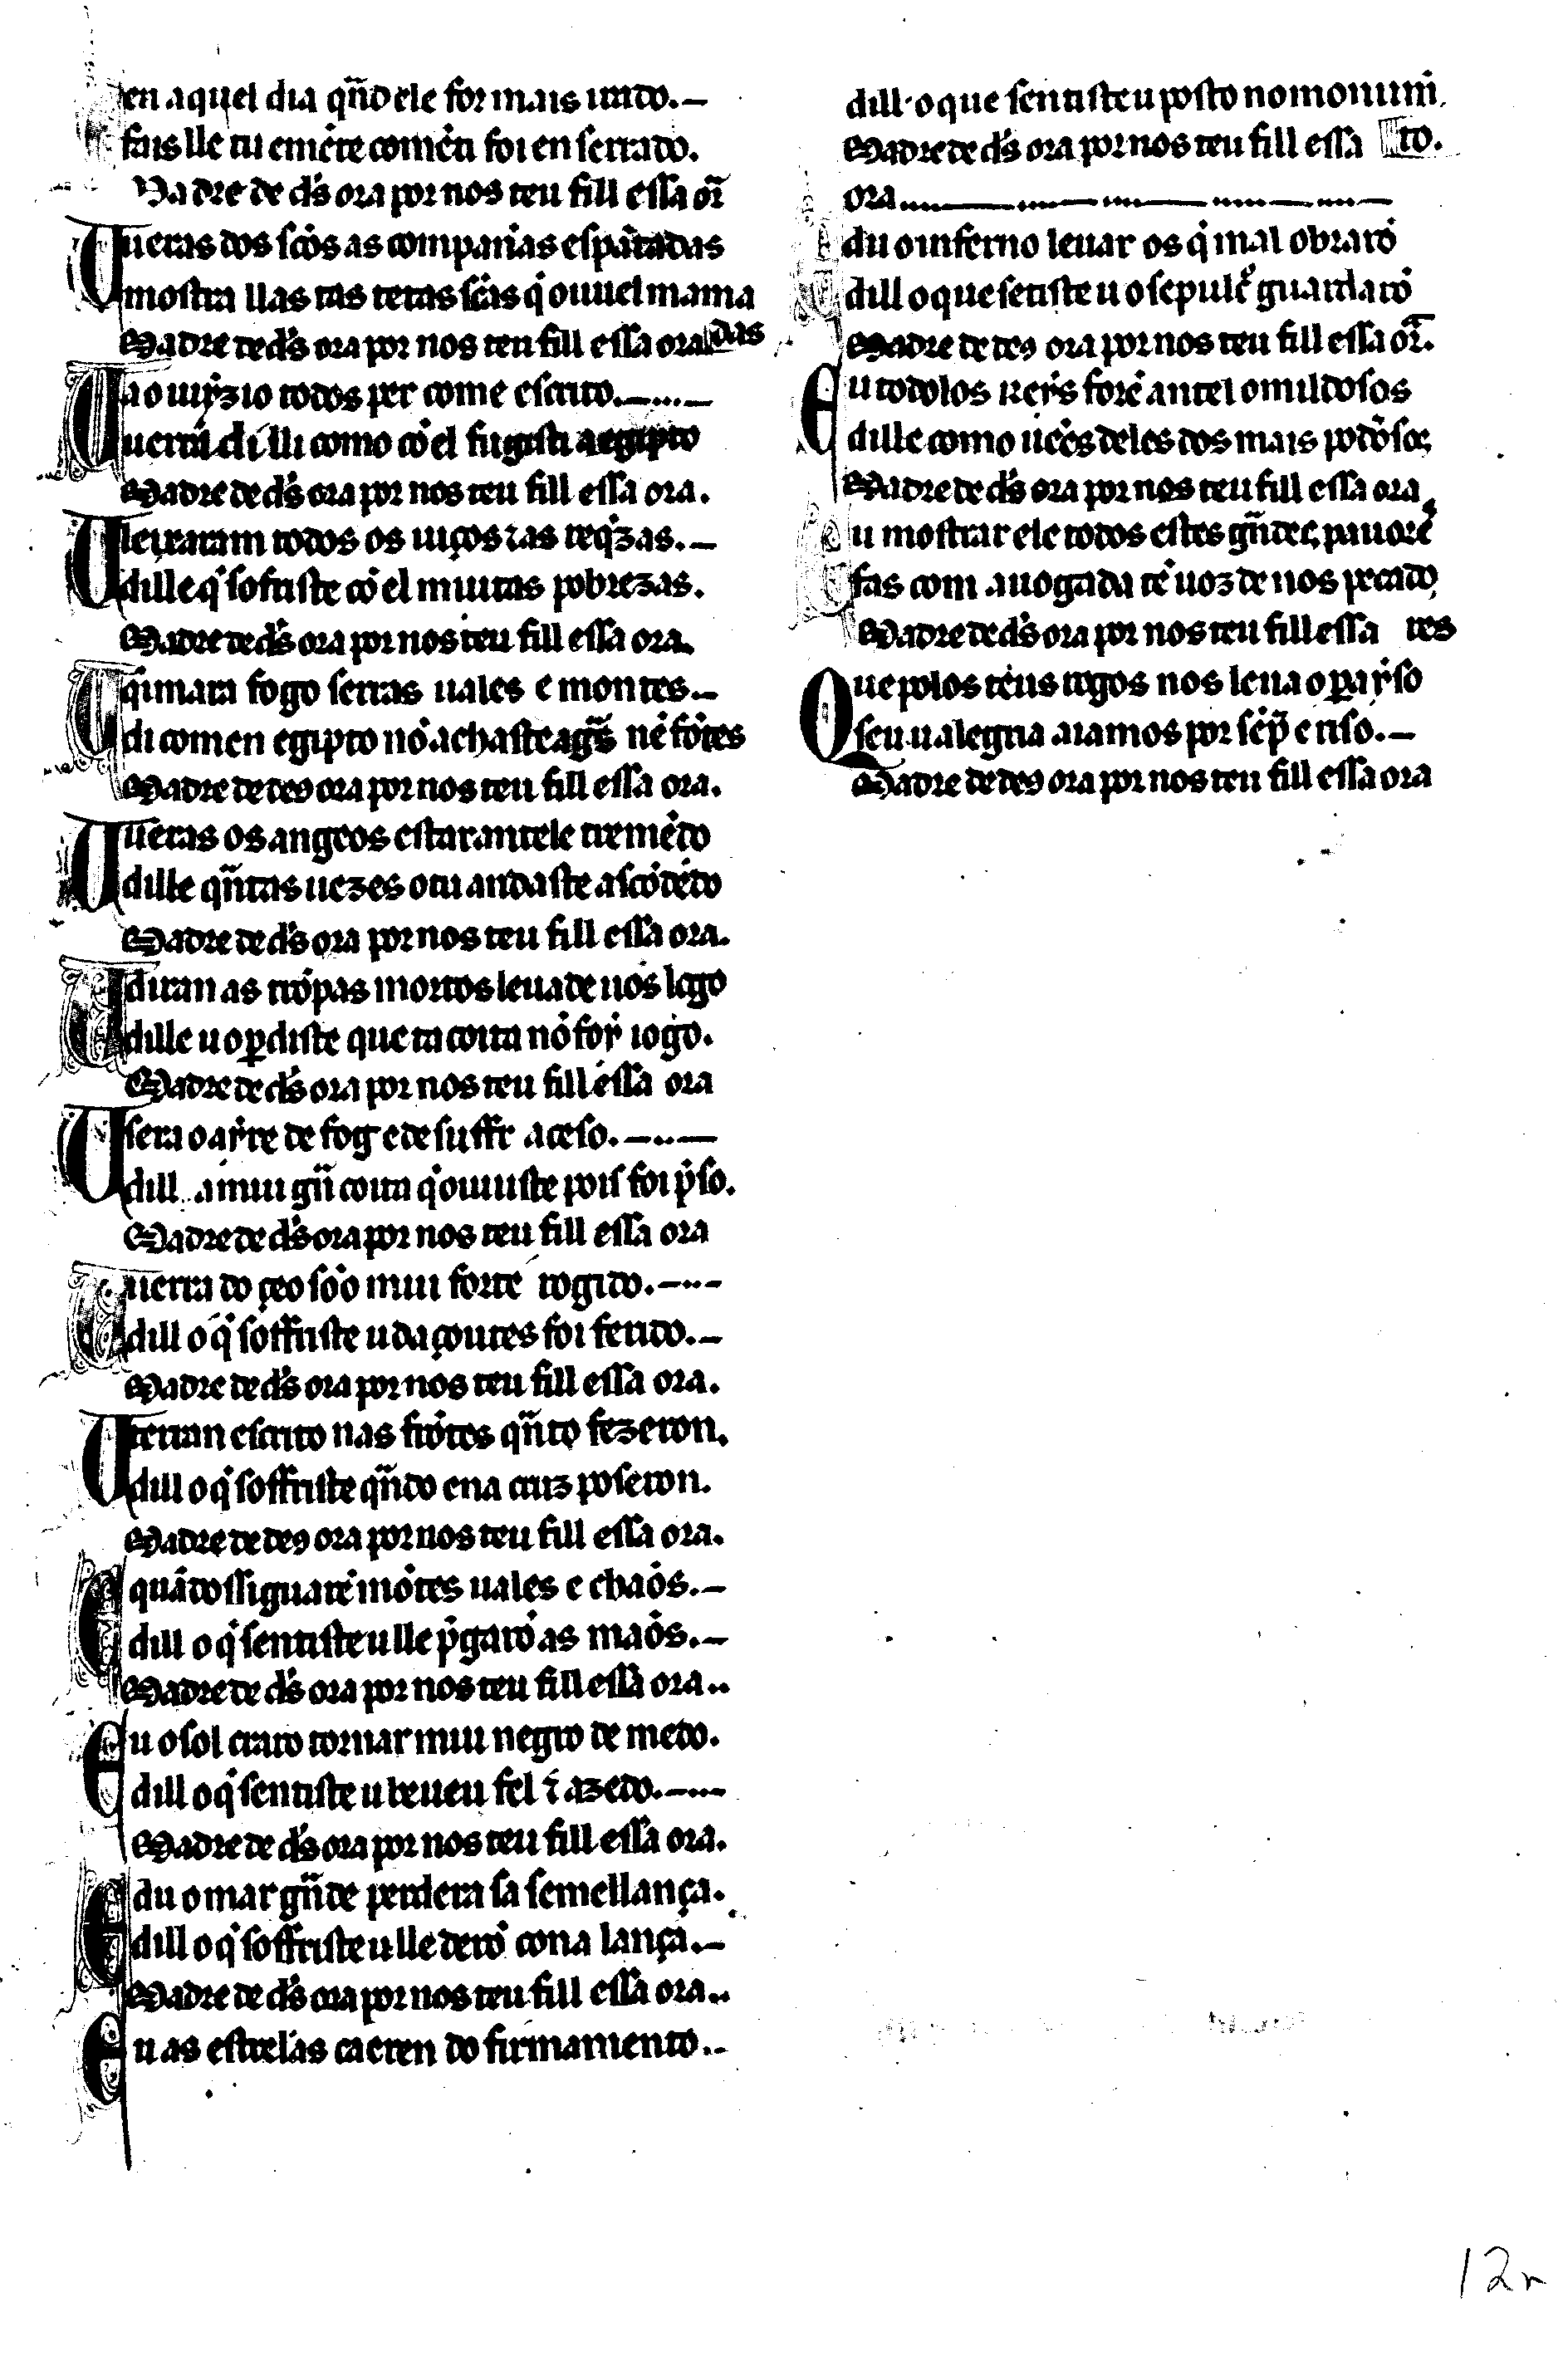 en aquel dia qñdo ele for mais irado.–
fais lle tu emẽte comẽ ti foi enserrado.
Madre de d̃s ora por nos teu fill essa or̃
U ueras dos sc̃os as compan̄as espãtadas
mostra llas tas tetas sc̃as q̇ ouuel mama
Madre de d̃s ora por nos teu fill essa ora das
U a o iuyzio todos per come escrito.–....–
uerrã di lli como cõ el fugisti a egipto
Madre de d̃s ora por nos teu fill essa ora.
U leixaram todos os uiços ⁊ as req̇zas.–
dille q̇ sofriste cõ el muitas pobrezas.
Madre de d̃s ora por nos teu fill essa ora.
U q̇imara fogo serras uales e montes.–
di com en egipto nõ achaste agũs nẽ fõtes
Madre de deꝯ ora por nos teu fill essa ora.
U ueras os angeos estar ant ele tremẽdo
dille qñtas uezes o tu andaste ascõdẽdo
Madre de d̃s ora por nos teu fill essa ora.
U diran as trõpas mortos leuade uos logo
dille u o ꝑdiste que ta coita nõ foỹ iogo.
Madre de d̃s ora por nos teu fill essa ora
U sera o aẏre de fog e de suffr aceso.–..–
dill a mui gñ coita q̇ ouuiste pois foi p̃so.
Madre de d̃s ora por nos teu fill essa ora
U uerra do çeo sõo mui forte rogido.–..–
dill o q̇ soffriste u d açoutes foi ferido.–
Madre de d̃s ora por nos teu fill essa ora.
U terran escrito nas frõtes qñto fezeron.
dill o q̇ soffriste qñdo ena cruz poseron.
Madre de deꝯ ora por nos teu fill essa ora.
E quãdo ss iguarẽ mõtes uales e chaõs.–
dill o q̇ sentiste u lle p̃garõ as maõs.–
Madre de d̃s ora por nos teu fill essa ora..
E u o sol craro tornar mui negro de medo.
dill o q̇ sentiste u beueu fel ⁊ azedo.–...–
Madre de d̃s ora por nos teu fill essa ora.
E du o mar gñde perdera sa semellança.
dill o q̇ soffriste u lle derõ cona lança.–
Madre de d̃s ora por nos teu fill essa ora..
E u as estrelas caeren do firmamento..
dill o que sentiste u posto no monum̃
Madre de d̃s ora por nos teu fill essa to.
ora
E du o inferno leuar os q̇ mal obrarõ
dill o que sẽtiste u o sepulc̃ guardarõ
Madre de deꝯ ora por nos teu fill essa or̃.
E u todolos reẏs forẽ ant el omildosos
dille como uẽes deles dos mais podosos
Madre de d̃s ora por nos teu fill essa ora
E u mostrar ele todos estes gñdes pauores
fas com auogada tẽ uoz de nos pecado
Madre de d̃s ora por nos teu fill essa res
Que polos teus rogos nos leua o ꝑaẏso
seu u alegria aiamos por sẽp̃ e riso.–
Madre de deꝯ ora por nos teu fill essa ora
12r